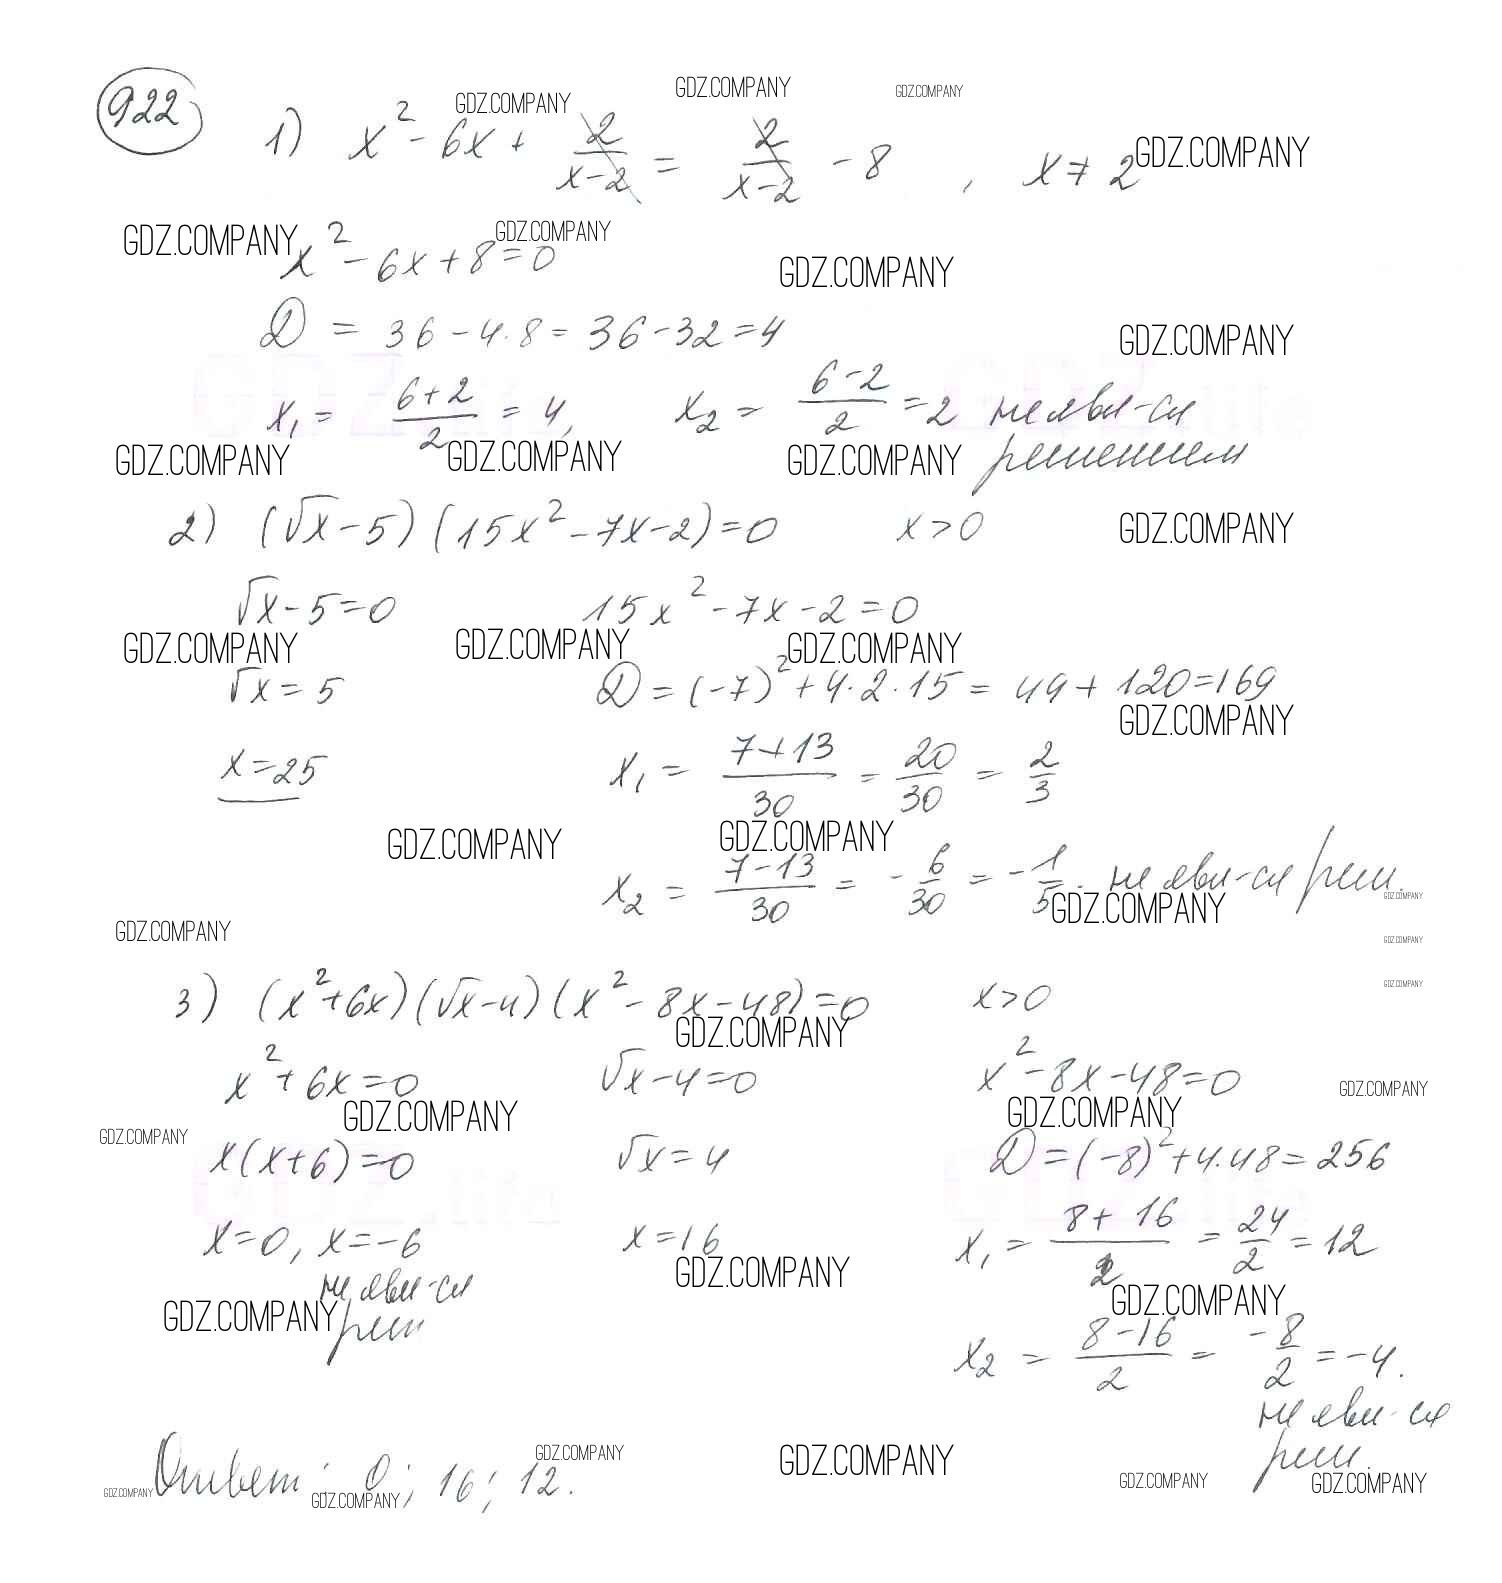 922
GDZ.COMPANY GDZ.COMPANY GDZ.COMPANY
1) x² - 6x + 2/(x-2) = 2/(x-2) - 8 , x ≠ 2 GDZ.COMPANY
GDZ.COMPANY GDZ.COMPANY
x² - 6x + 8 = 0 GDZ.COMPANY
D = 36 - 4·8 = 36 - 32 = 4 GDZ.COMPANY
x₁ = (6+2)/2 = 4, x₂ = (6-2)/2 = 2 не яви-ся
GDZ.COMPANY GDZ.COMPANY GDZ.COMPANY решением
2) (√x - 5)(15x² - 7x - 2) = 0 x > 0 GDZ.COMPANY
√x - 5 = 0 15x² - 7x - 2 = 0
GDZ.COMPANY GDZ.COMPANY GDZ.COMPANY
√x = 5 D = (-7)² + 4·2·15 = 49 + 120 = 169
GDZ.COMPANY
x = 25 x₁ = (7+13)/30 = 20/30 = 2/3
GDZ.COMPANY GDZ.COMPANY
x₂ = (7-13)/30 = -6/30 = -1/5. не яви-ся реш.
GDZ.COMPANY GDZ.COMPANY
GDZ.COMPANY GDZ.COMPANY
3) (x² + 6x)(√x - 4)(x² - 8x - 48) = 0 x > 0 GDZ.COMPANY
GDZ.COMPANY
x² + 6x = 0 √x - 4 = 0 x² - 8x - 48 = 0 GDZ.COMPANY
GDZ.COMPANY GDZ.COMPANY
GDZ.COMPANY
x(x+6) = 0 √x = 4 D = (-8)² + 4·48 = 256
GDZ.life GDZ.life
x = 0, x = -6 x = 16 x₁ = (8+16)/2 = 24/2 = 12
не яви-ся GDZ.COMPANY GDZ.COMPANY
GDZ.COMPANY реш
x₂ = (8-16)/2 = -8/2 = -4.
не яви-ся
реш.
GDZ.COMPANY GDZ.COMPANY
Ответ: 0; 16; 12.
GDZ.COMPANY GDZ.COMPANY GDZ.COMPANY GDZ.COMPANY